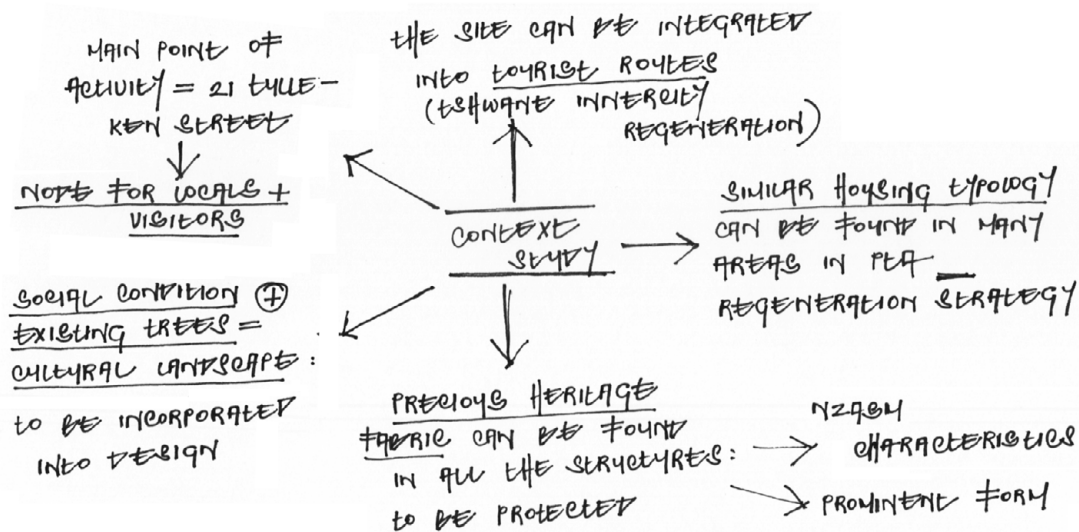 MAIN POINT OF
ACTIVITY = 21 TULLE-
KEN STREET
NODE FOR LOCALS +
VISITORS
THE SITE CAN BE INTEGRATED
INTO TOURIST ROUTES
(TSHWANE INNERCITY
REGENERATION)
CONTEXT
STUDY
SIMILAR HOUSING TYPOLOGY
CAN BE FOUND IN MANY
AREAS IN PTA —
REGENERATION STRATEGY
SOCIAL CONDITION +
EXISTING TREES =
CULTURAL LANDSCAPE :
TO BE INCORPORATED
INTO DESIGN
PRECIOUS HERITAGE
FABRIC CAN BE FOUND
IN ALL THE STRUCTURES :
TO BE PROTECTED
NZASM
CHARACTERISTICS
PROMINENT FORM